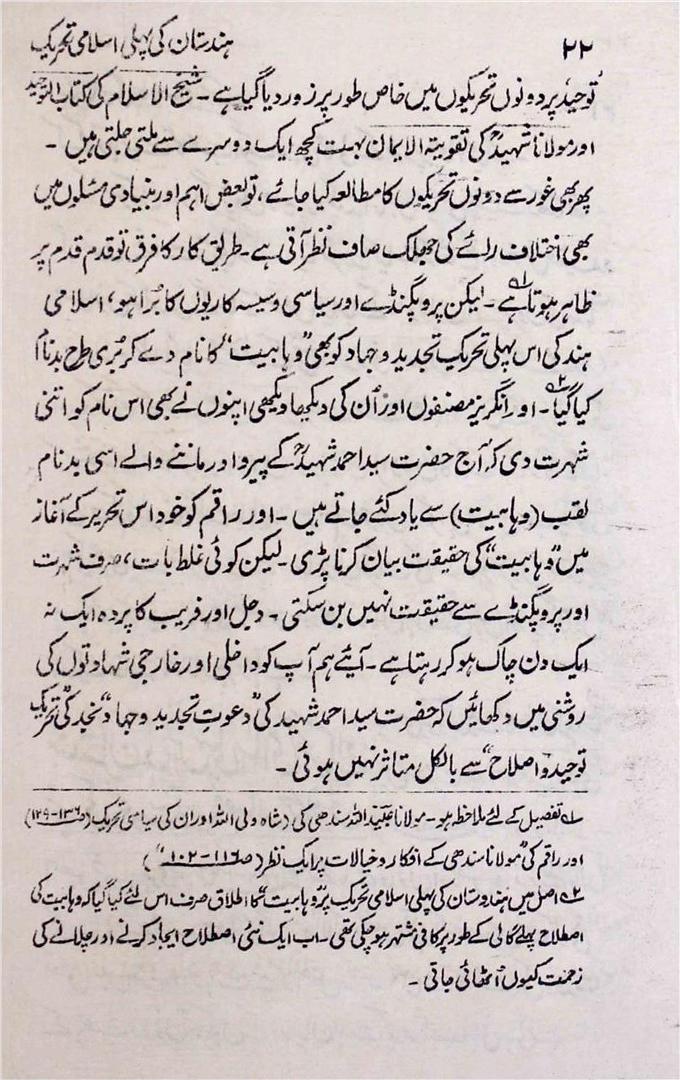 ۲۲ ہندستان کی پہلی اسلامی تحریک
توحید پر دونوں تحریکوں میں خاص طور پر زور دیا گیا ہے ۔ شیخ الاسلام کی کتاب التوحید
اور مولانا شہیدؒ کی تقویۃ الایمان بہت کچھ ایک دوسرے سے ملتی جلتی ہیں ۔
پھر بھی غور سے دونوں تحریکوں کا مطالعہ کیا جائے، تو بعض اہم اور بنیادی مسئلوں میں
بھی اختلاف رائے کی جھلک صاف نظر آتی ہے ۔ طریق کار کا فرق تو قدم قدم پر
ظاہر ہوتا ہے ۱؎ ۔ لیکن پروپگنڈے اور سیاسی دسیسہ کاریوں کا بُرا ہو، اسلامی
ہند کی اس پہلی تحریک تجدید و جہاد کو بھی ”وہابیت“ کا نام دے کر بُری طرح بدنام
کیا گیا ۲؎ ۔ اور انگریز مصنفوں اور اُن کی دیکھا دیکھی اپنوں نے بھی اس نام کو اتنی
شہرت دی کہ آج حضرت سید احمد شہیدؒ کے پیرو اور ماننے والے اسی بدنام
لقب (وہابیت) سے یاد کئے جاتے ہیں ۔ اور راقم کو خود اس تحریر کے آغاز
میں ”وہابیت“ کی حقیقت بیان کرنا پڑی ۔ لیکن کوئی غلط بات، صرف شہرت
اور پروپگنڈے سے حقیقت نہیں بن سکتی ۔ دجل اور فریب کا پردہ ایک نہ
ایک دن چاک ہو کر رہتا ہے ۔ آئیے ہم آپ کو داخلی اور خارجی شہادتوں کی
روشنی میں دکھائیں کہ حضرت سید احمد شہید کی ”دعوتِ تجدید و جہاد“ نجد کی ”تحریک
توحید و اصلاح“ سے بالکل متاثر نہیں ہوئی ۔
۱؎ تفصیل کے لئے ملاحظہ ہو ۔ مولانا عبیداللہ سندھی کی (شاہ ولی اللہ اور ان کی سیاسی تحریک (ص ۱۳۶-۱۲۹)
اور راقم کی ”مولانا سندھی کے افکار و خیالات پر ایک نظر (ص ۱۱۶-۱۰۲“)
۲؎ اصل میں ہندوستان کی پہلی اسلامی تحریک پر ”وہابیت“ کا اطلاق صرف اس لئے کیا گیا کہ وہابیت کی
اصطلاح پہلے گالی کے طور پر کافی مشتہر ہو چکی تھی ۔ اب ایک نئی اصطلاح ایجاد کرنے اور چلانے کی
زحمت کیوں اُٹھائی جاتی ۔